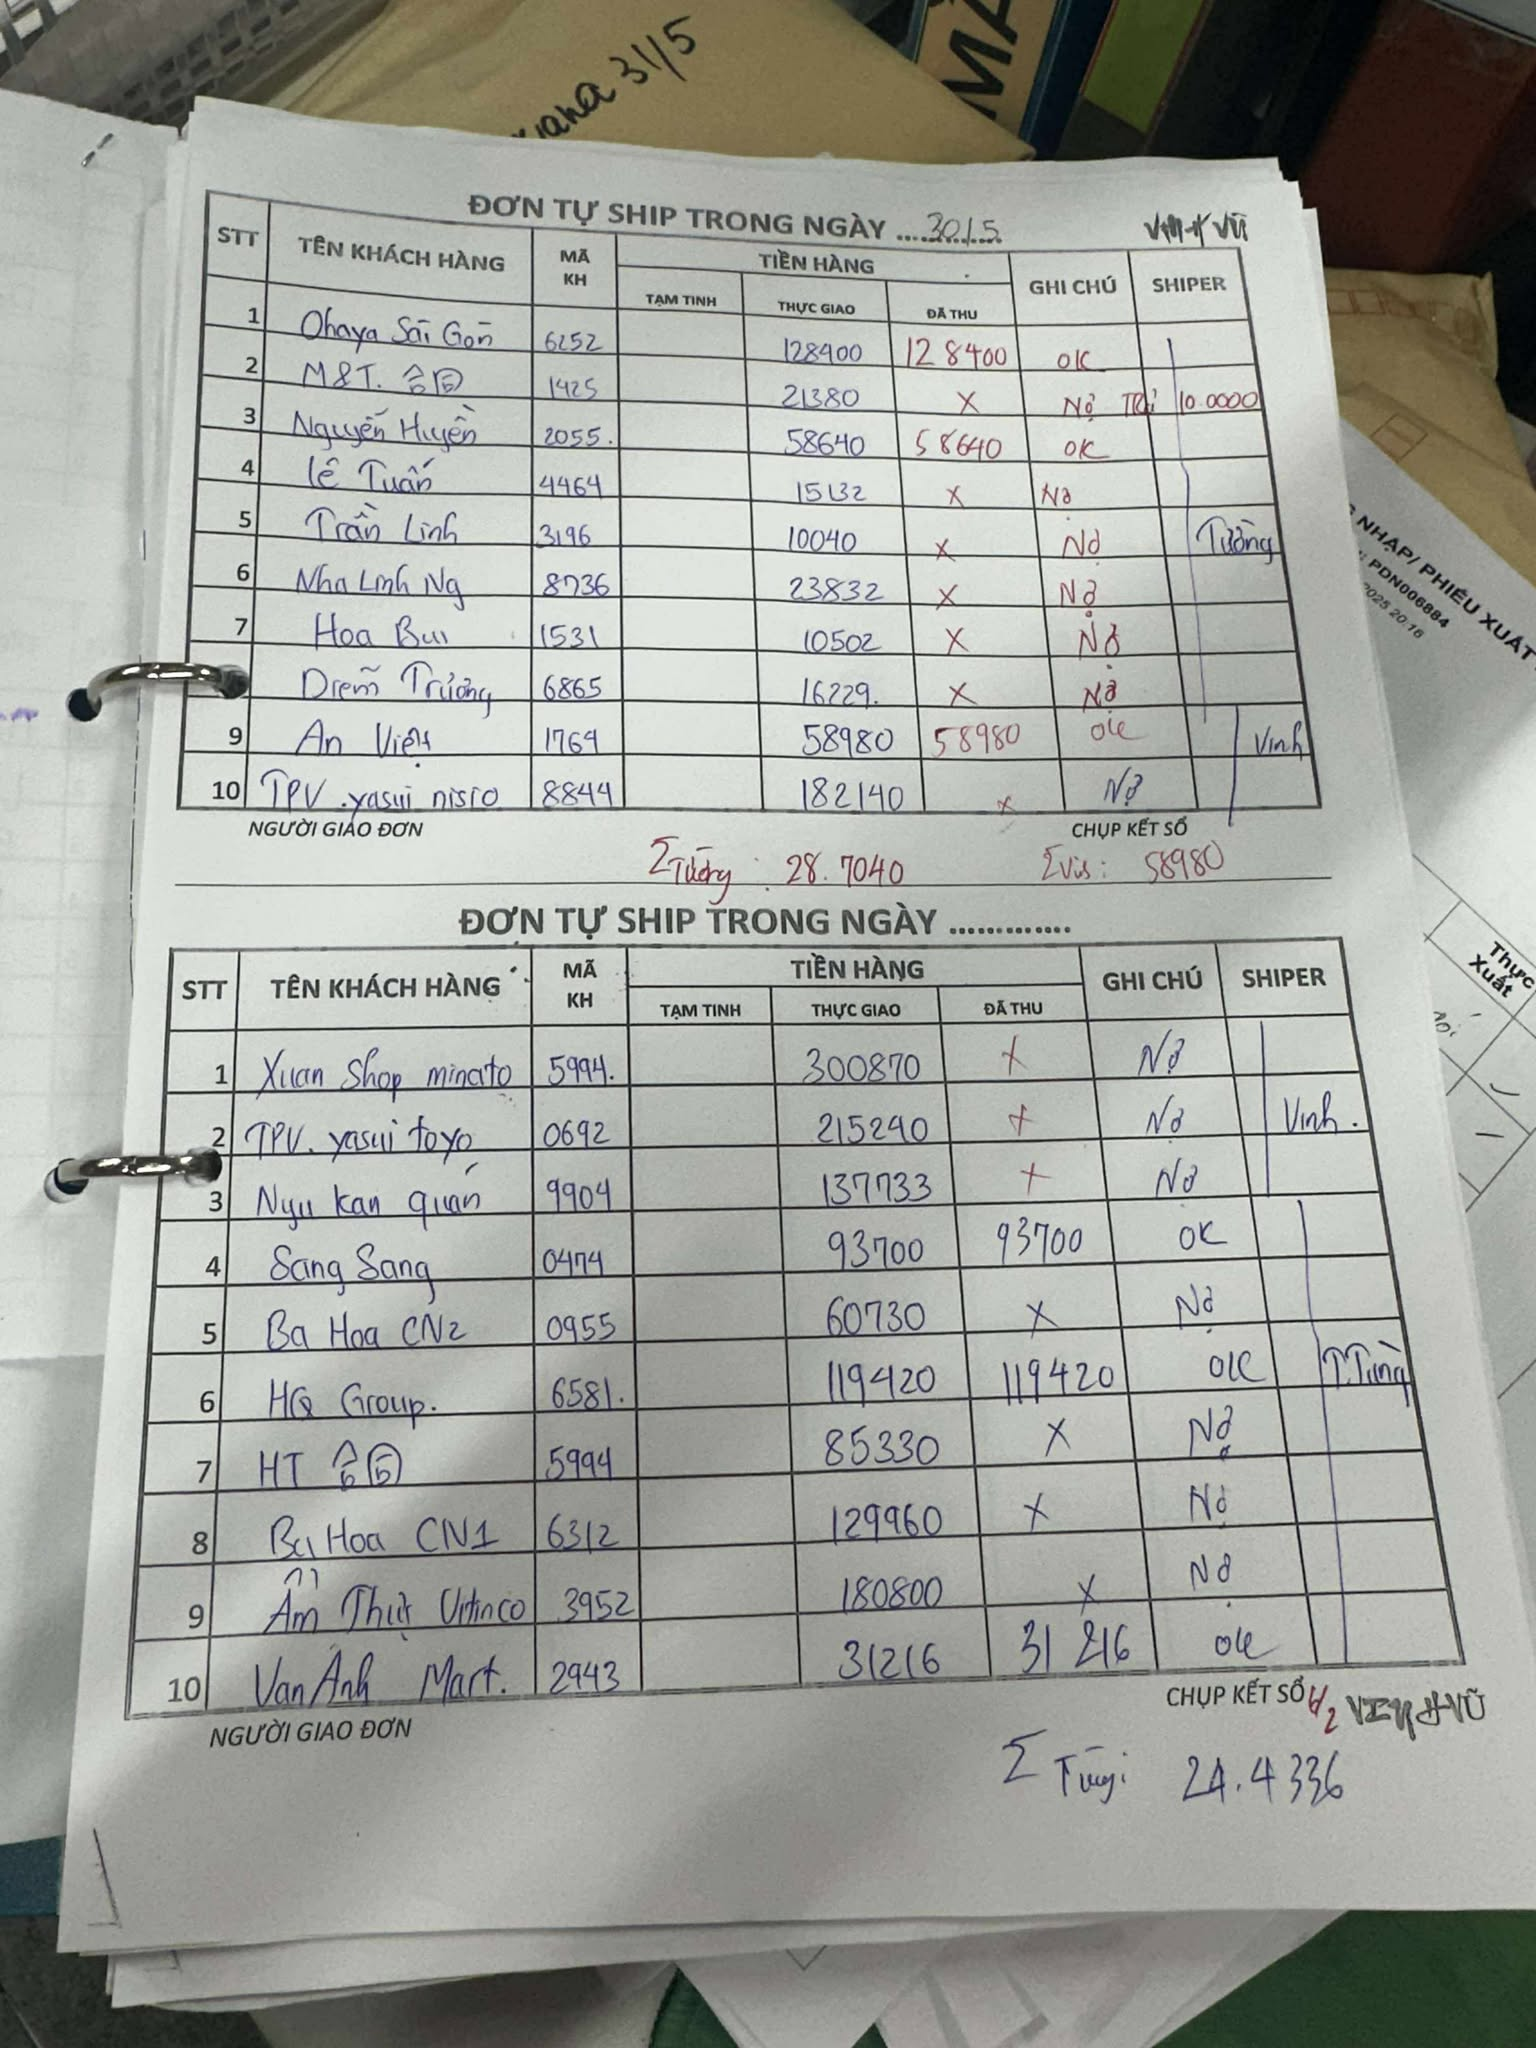 uana 31/5
MÃ
ĐƠN TỰ SHIP TRONG NGÀY ....30/5....
VŨ
STT TÊN KHÁCH HÀNG MÃ KH TIỀN HÀNG GHI CHÚ SHIPER
TẠM TINH THỰC GIAO ĐÃ THU
1 Ohaya Sài Gòn 6252 128400 128400 OK
2 M&T. 合同 1425 21380 X Nợ Trả 10.0000
3 Nguyễn Huyền 2055. 58640 58640 OK
4 Lê Tuấn 4464 15132 X Nợ
5 Trần Linh 3196 10040 X Nợ Tường
6 Nha Linh Ng 8736 23832 X Nợ
7 Hoa Bui 1531 10502 X Nợ
Diễm Trương 6865 16229. X Nợ
9 An Việt 1764 58980 58980 OK Vinh
10 TPV.yasui nisio 8844 182140 X Nợ
NGƯỜI GIAO ĐƠN CHỤP KẾT SỔ
Σ Tường : 28.7040 Σ Vis: 58980
ĐƠN TỰ SHIP TRONG NGÀY .............
STT TÊN KHÁCH HÀNG MÃ KH TIỀN HÀNG GHI CHÚ SHIPER
TẠM TINH THỰC GIAO ĐÃ THU
1 Xuan Shop minato 5994. 300870 X Nợ
2 TPV. yasui toyo 0692 215240 X Nợ Vinh.
3 Nyu kan quán 9904 137733 X Nợ
4 Sang Sang 0474 93700 93700 OK
5 Ba Hoa CN2 0955 60730 X Nợ
6 HQ Group. 6581. 119420 119420 OK T.Tùng
7 HT 合同 5994 85330 X Nợ
8 Ba Hoa CN1 6312 129960 X Nợ
9 Ẩm Thực Vitinco 3952 180800 X Nợ
10 Van Anh Mart. 2943 31216 31 216 OK
NGƯỜI GIAO ĐƠN CHỤP KẾT SỔ
VINH VŨ
Σ Tùng: 24.4336
NHẬP/ PHIẾU XUẤT
PDN006884
2025 20:16
Thực
Xuất